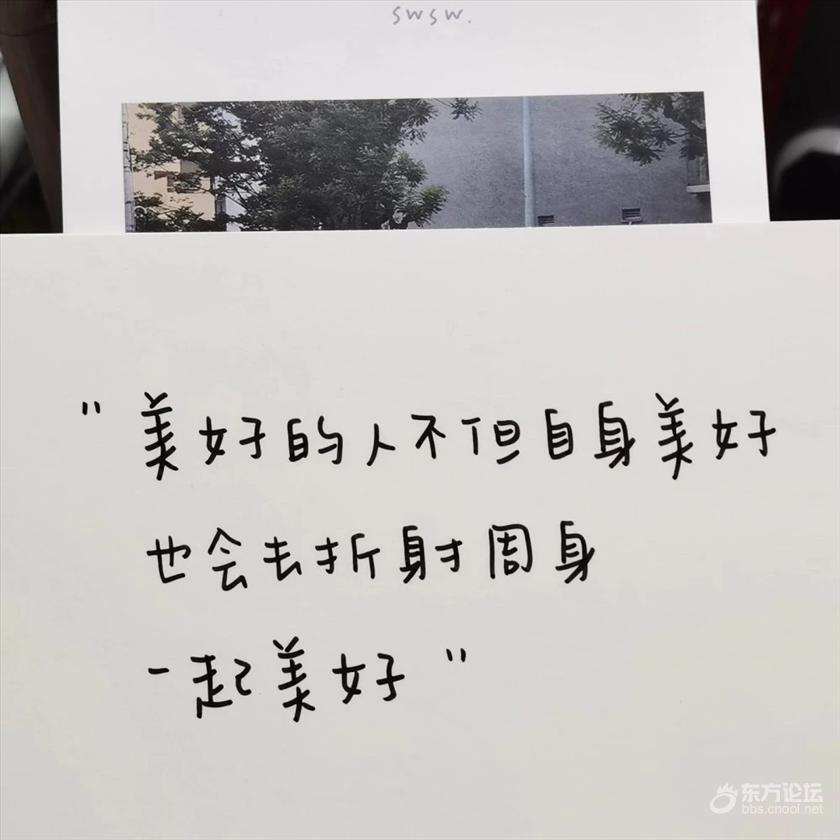 swsw.
"美好的人不但自身美好
也会去折射周身
一起美好"
东方论坛
bbs.cnool.net